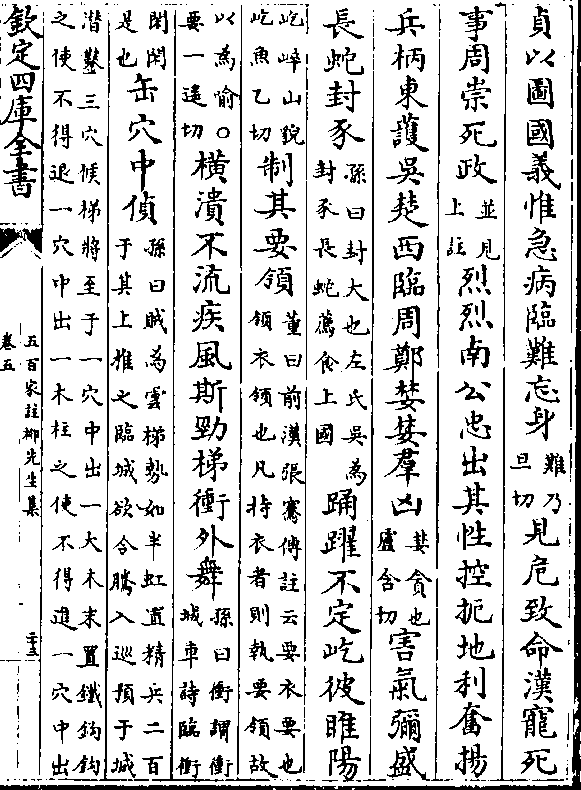 貞以圖國義惟急病臨難忘身難乃旦切見危致命漢寵死
事周崇死政並見上註烈烈南公忠出其性控扼地利奮揚
兵柄東護吳楚西臨周鄭婪婪羣凶婪貪也盧含切害氣彌盛
長蛇封豕孫曰封大也左氏吳為封豕長蛇薦食上國踊躍不定屹彼睢陽
屹崪山貌屹魚乙切制其要領董曰前漢張騫傳註云要衣要也領衣領也凡持衣者則執要領故
以為喻○要一遥切橫潰不流疾風斯勁梯衝外舞孫曰衝謂衝城車詩臨衝
閑閑是也缶穴中偵孫曰賊為雲梯勢如半虹置精兵二百于其上推之臨城欲令騰入巡預于城
潜鑿三穴候梯將至于一穴中出一大木末置鐵鈎鈎之使不得退一穴中出一木柱之使不得進一穴中出
欽定四庫全書
五百家註柳先生集
卷五
二十三